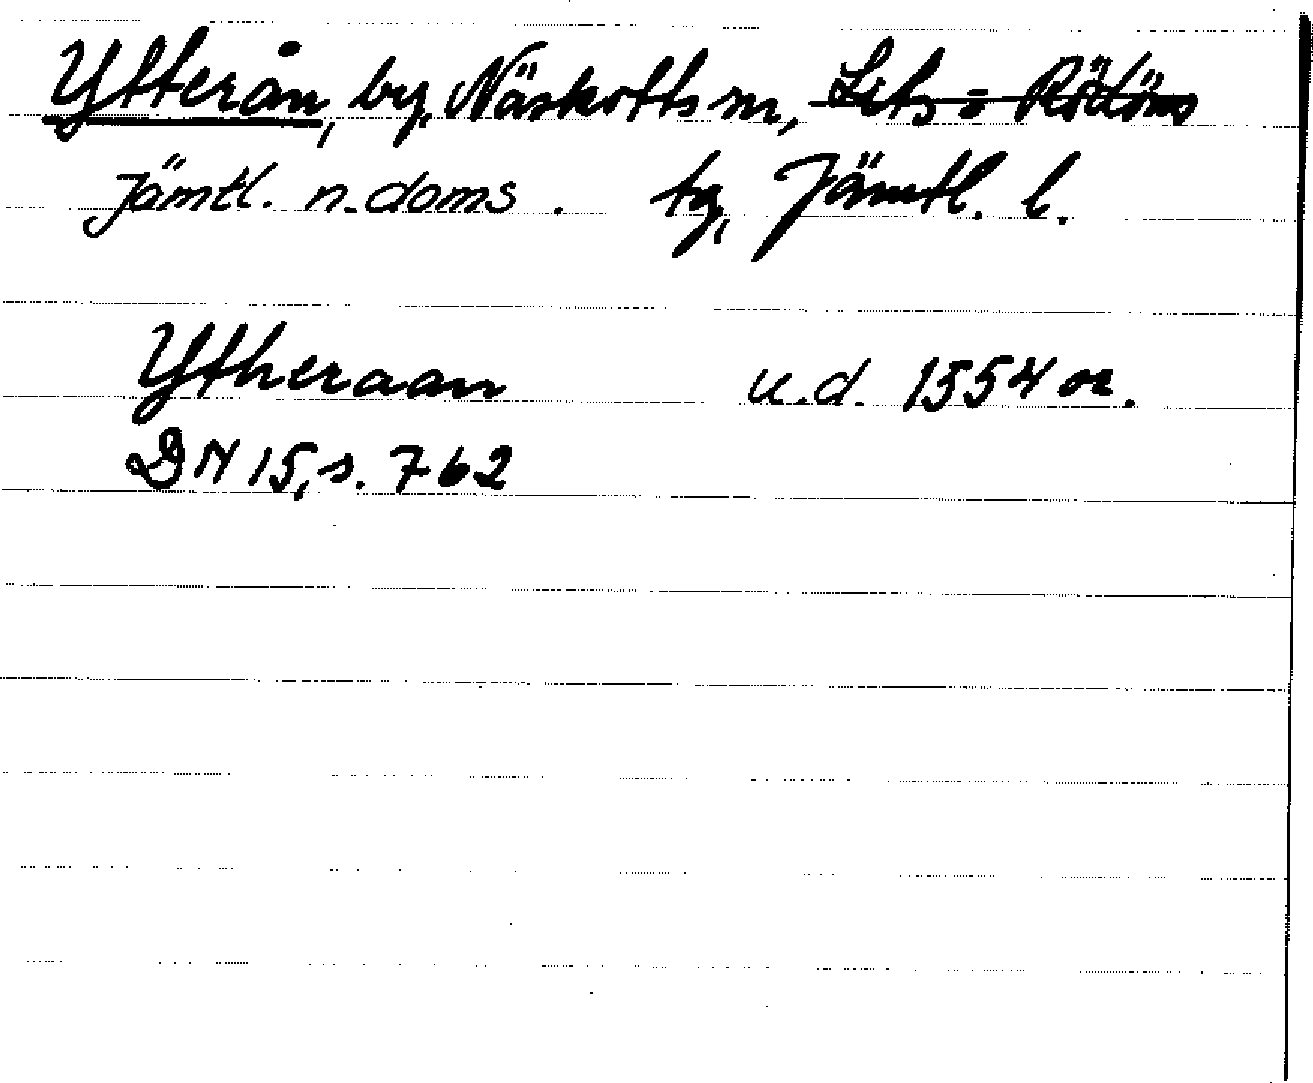 Ytterån, by, Näskotts sn, Lits o Rödöns
Jämtl. n. doms. tg, Jämtl. l.
Ytheraan u.d. 1554 or.
DN 15, s. 762